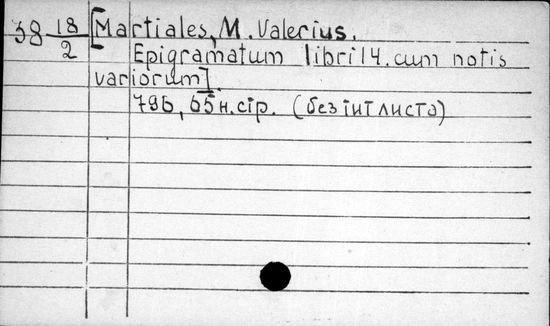 38 18/2 [Martiales, M. Valerius.
Epigramatum libri 14. cum notis
variorum].
796, 65 н. стр. (без тит листа)